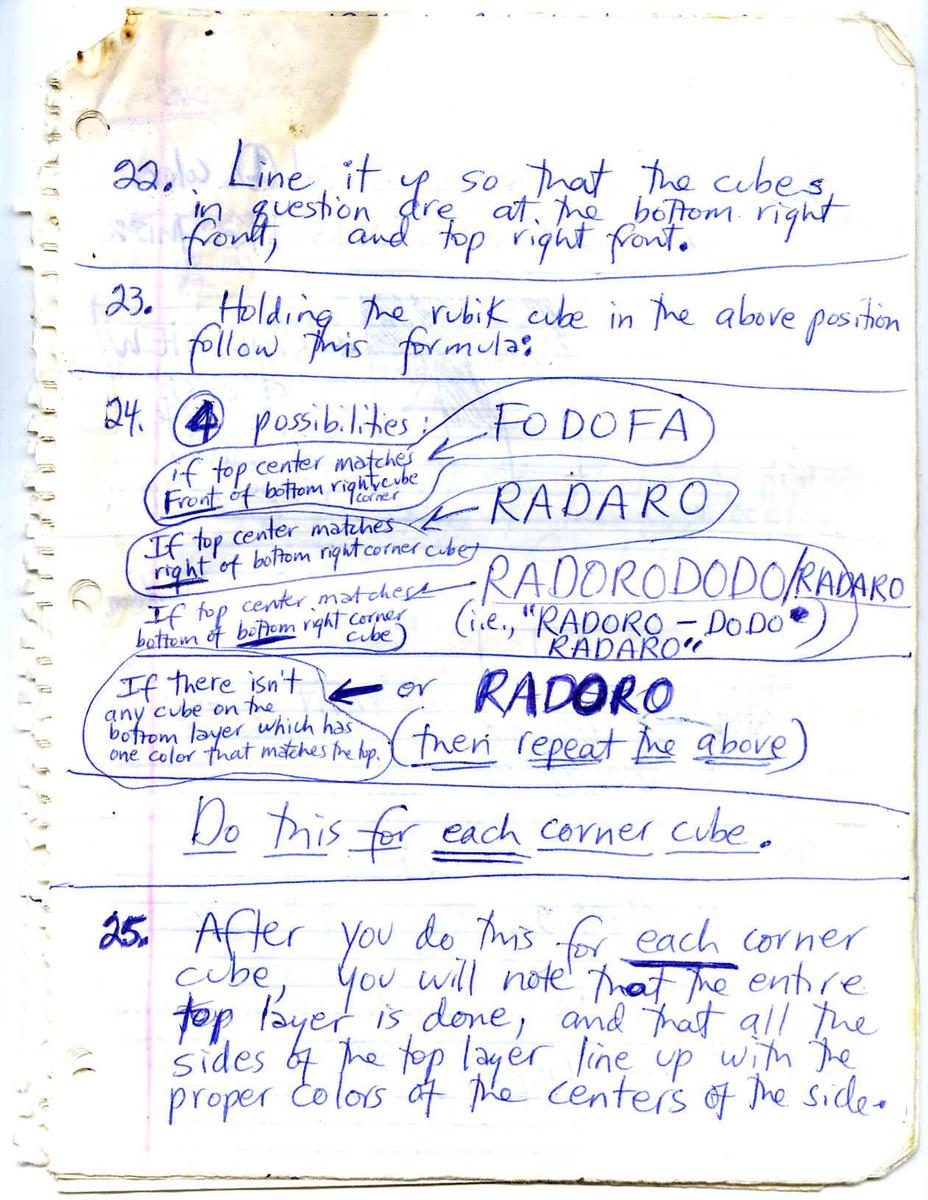 22. Line it up so that the cubes
in question are at the bottom right
front, and top right front.
23. Holding the rubik cube in the above position
follow this formula:
24. 4 possibilities: FODOFA
if top center matches
Front of bottom right cube
corner
RADARO
If top center matches
right of bottom right corner cube
RADORODODO/RADARO
(i.e., "RADORO - DODO
RADARO")
If top center matches
bottom of bottom right corner
cube)
If there isn't
any cube on the
bottom layer which has
one color that matches the top.
or RADORO
(then repeat the above)
Do this for each corner cube.
25. After you do this for each corner
cube, you will note that the entire
top layer is done, and that all the
sides of the top layer line up with the
proper colors of the centers of the side.